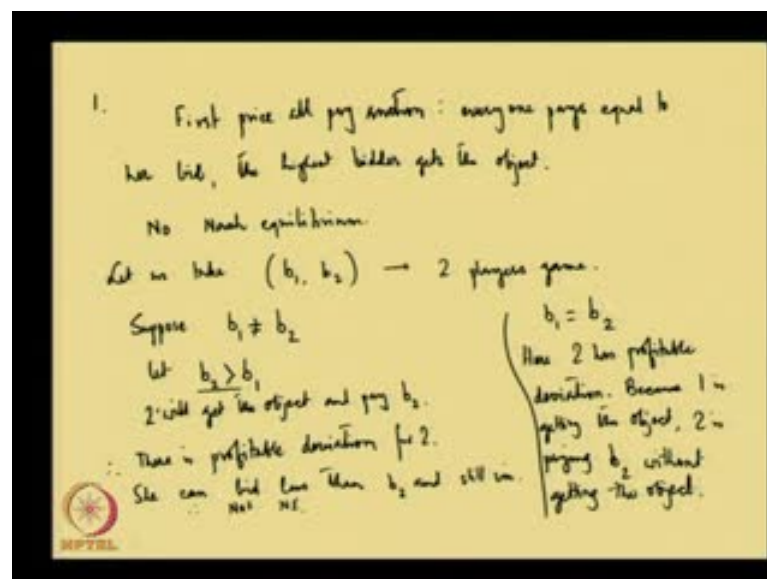 1. First price all pay auction : everyone pays equal to
her bid, the highest bidder gets the object.
No Nash equilibrium.
Let us take (b₁, b₂) → 2 players game.
Suppose b₁ ≠ b₂
let b₂ > b₁
2 will get the object and pay b₂.
∴ There is profitable deviation for 2.
She can bid less than b₂ and still win.
∴ Not NE
b₁ = b₂
Here 2 has profitable
deviation. Because 1 is
getting the object, 2 is
paying b₂ without
getting the object.
NPTEL